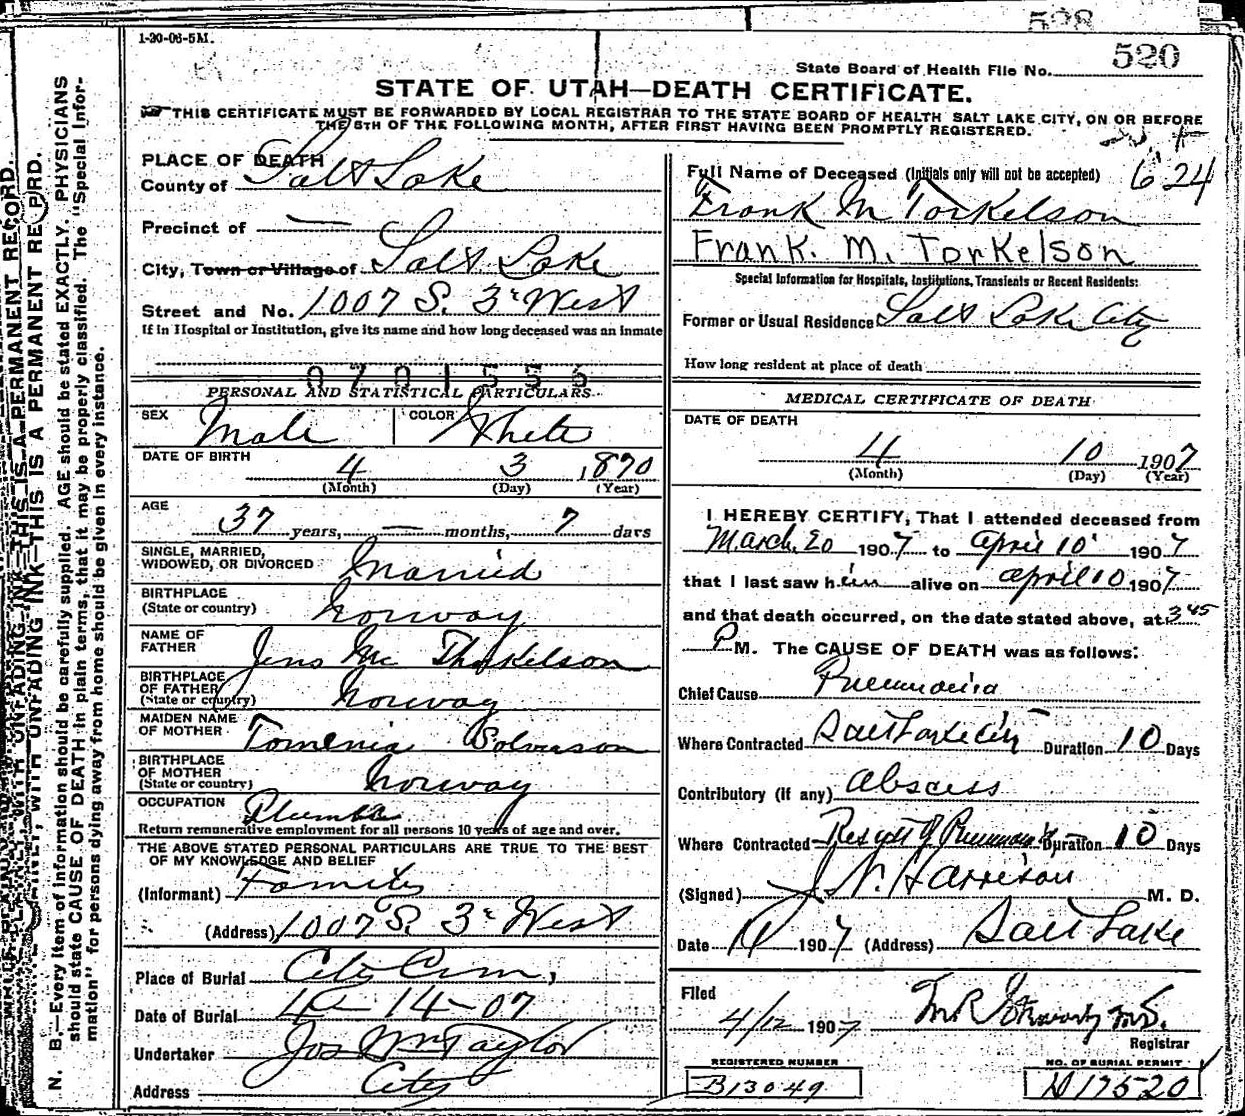 528
1-20-06-5M.
520
State Board of Health File No.
STATE OF UTAH—DEATH CERTIFICATE.
THIS CERTIFICATE MUST BE FORWARDED BY LOCAL REGISTRAR TO THE STATE BOARD OF HEALTH SALT LAKE CITY, ON OR BEFORE
THE 5TH OF THE FOLLOWING MONTH, AFTER FIRST HAVING BEEN PROMPTLY REGISTERED.
N. B.—Every item of information should be carefully supplied. AGE should be stated EXACTLY. PHYSICIANS
should state CAUSE OF DEATH in plain terms, that it may be properly classified. The "Special Infor-
mation" for persons dying away from home should be given in every instance.
WITH UNFADING INK—THIS IS A PERMANENT RECORD.
PLACE OF DEATH
County of Salt Lake
Precinct of —
City, Town or Village of Salt Lake
Street and No. 1007 S. 3rd West
If in Hospital or Institution, give its name and how long deceased was an inmate
0701556
PERSONAL AND STATISTICAL PARTICULARS
SEX Male COLOR White
DATE OF BIRTH 4 3 1870
(Month) (Day) (Year)
AGE 37 years, — months, 7 days
SINGLE, MARRIED,
WIDOWED, OR DIVORCED Married
BIRTHPLACE
(State or country) Norway
NAME OF
FATHER Jens Mc Thorkelson
BIRTHPLACE
OF FATHER
(State or country) Norway
MAIDEN NAME
OF MOTHER Tomenia Solverson
BIRTHPLACE
OF MOTHER
(State or country) Norway
OCCUPATION Plumber
Return remunerative employment for all persons 10 years of age and over.
THE ABOVE STATED PERSONAL PARTICULARS ARE TRUE TO THE BEST
OF MY KNOWLEDGE AND BELIEF
(Informant) Family
(Address) 1007 S. 3rd West
Place of Burial City Cem,
Date of Burial 4-14-07
Undertaker Jos Wm Taylor
Address City
Full Name of Deceased (Initials only will not be accepted) 624
Frank M Torkelson
Frank. M. Torkelson
Special Information for Hospitals, Institutions, Transients or Recent Residents:
Former or Usual Residence Salt Lake City
How long resident at place of death
MEDICAL CERTIFICATE OF DEATH
DATE OF DEATH
4 10 1907
(Month) (Day) (Year)
I HEREBY CERTIFY, That I attended deceased from
March 20 1907 to April 10 1907
that I last saw him alive on April 10 1907
and that death occurred, on the date stated above, at 3 45
P M. The CAUSE OF DEATH was as follows:
Chief Cause Pneumonia
Where Contracted Salt Lake City Duration 10 Days
Contributory (if any) Abscess
Where Contracted Result of Pneumonia Duration 10 Days
(Signed) J N. Harrison M. D.
Date 1907 (Address) Salt Lake
Filed
4/12 1907
Registrar
REGISTERED NUMBER
B13049
NO. OF BURIAL PERMIT
D17520